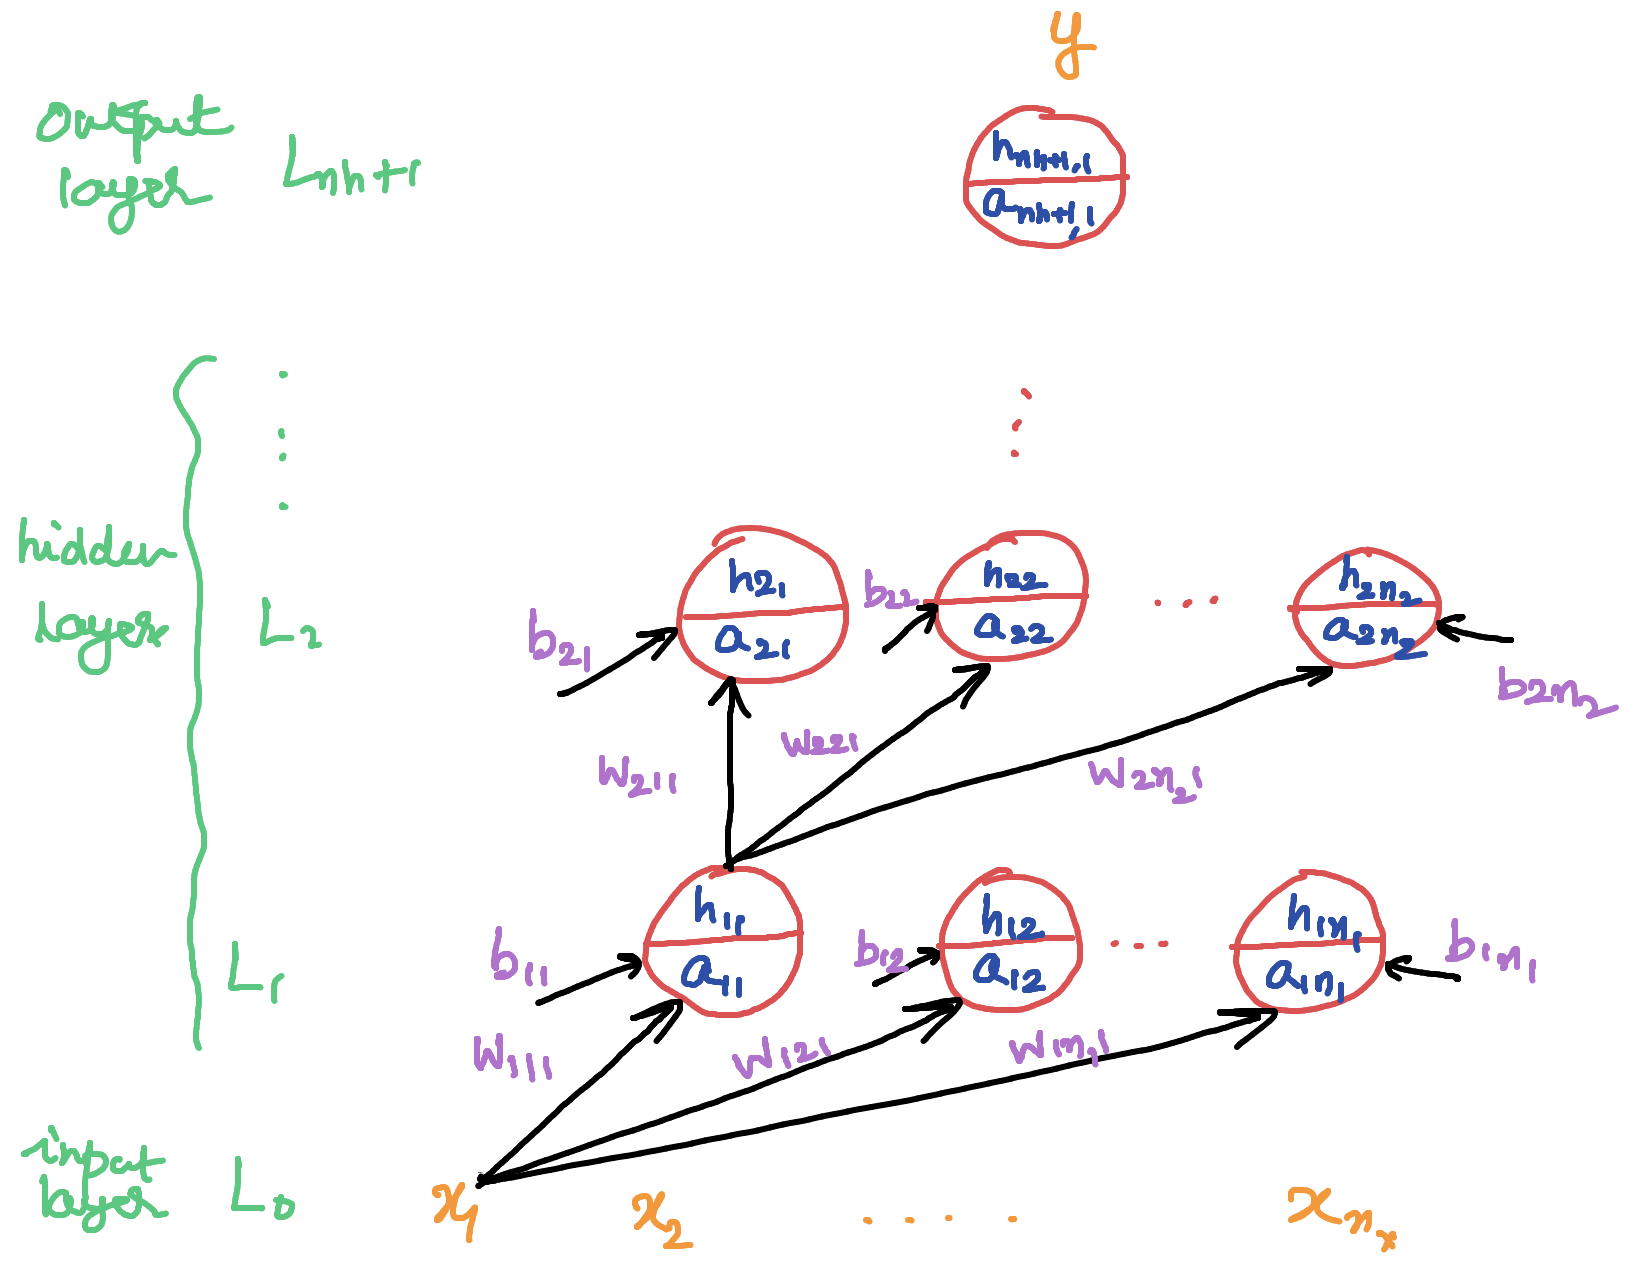 y
output layer L_{nh+1}
h_{nh+1,1}
a_{nh+1,1}
hidden layer
L_2
h_{21} h_{22} .... h_{2n_2}
a_{21} a_{22} a_{2n_2}
b_{21} b_{22} b_{2n_2}
W_{211} W_{221} W_{2n_21}
L_1
h_{11} h_{12} .... h_{1n_1}
a_{11} a_{12} a_{1n_1}
b_{11} b_{12} b_{1n_1}
W_{111} W_{121} W_{1n_11}
input layer L_0
x_1 x_2 .... x_{n_x}